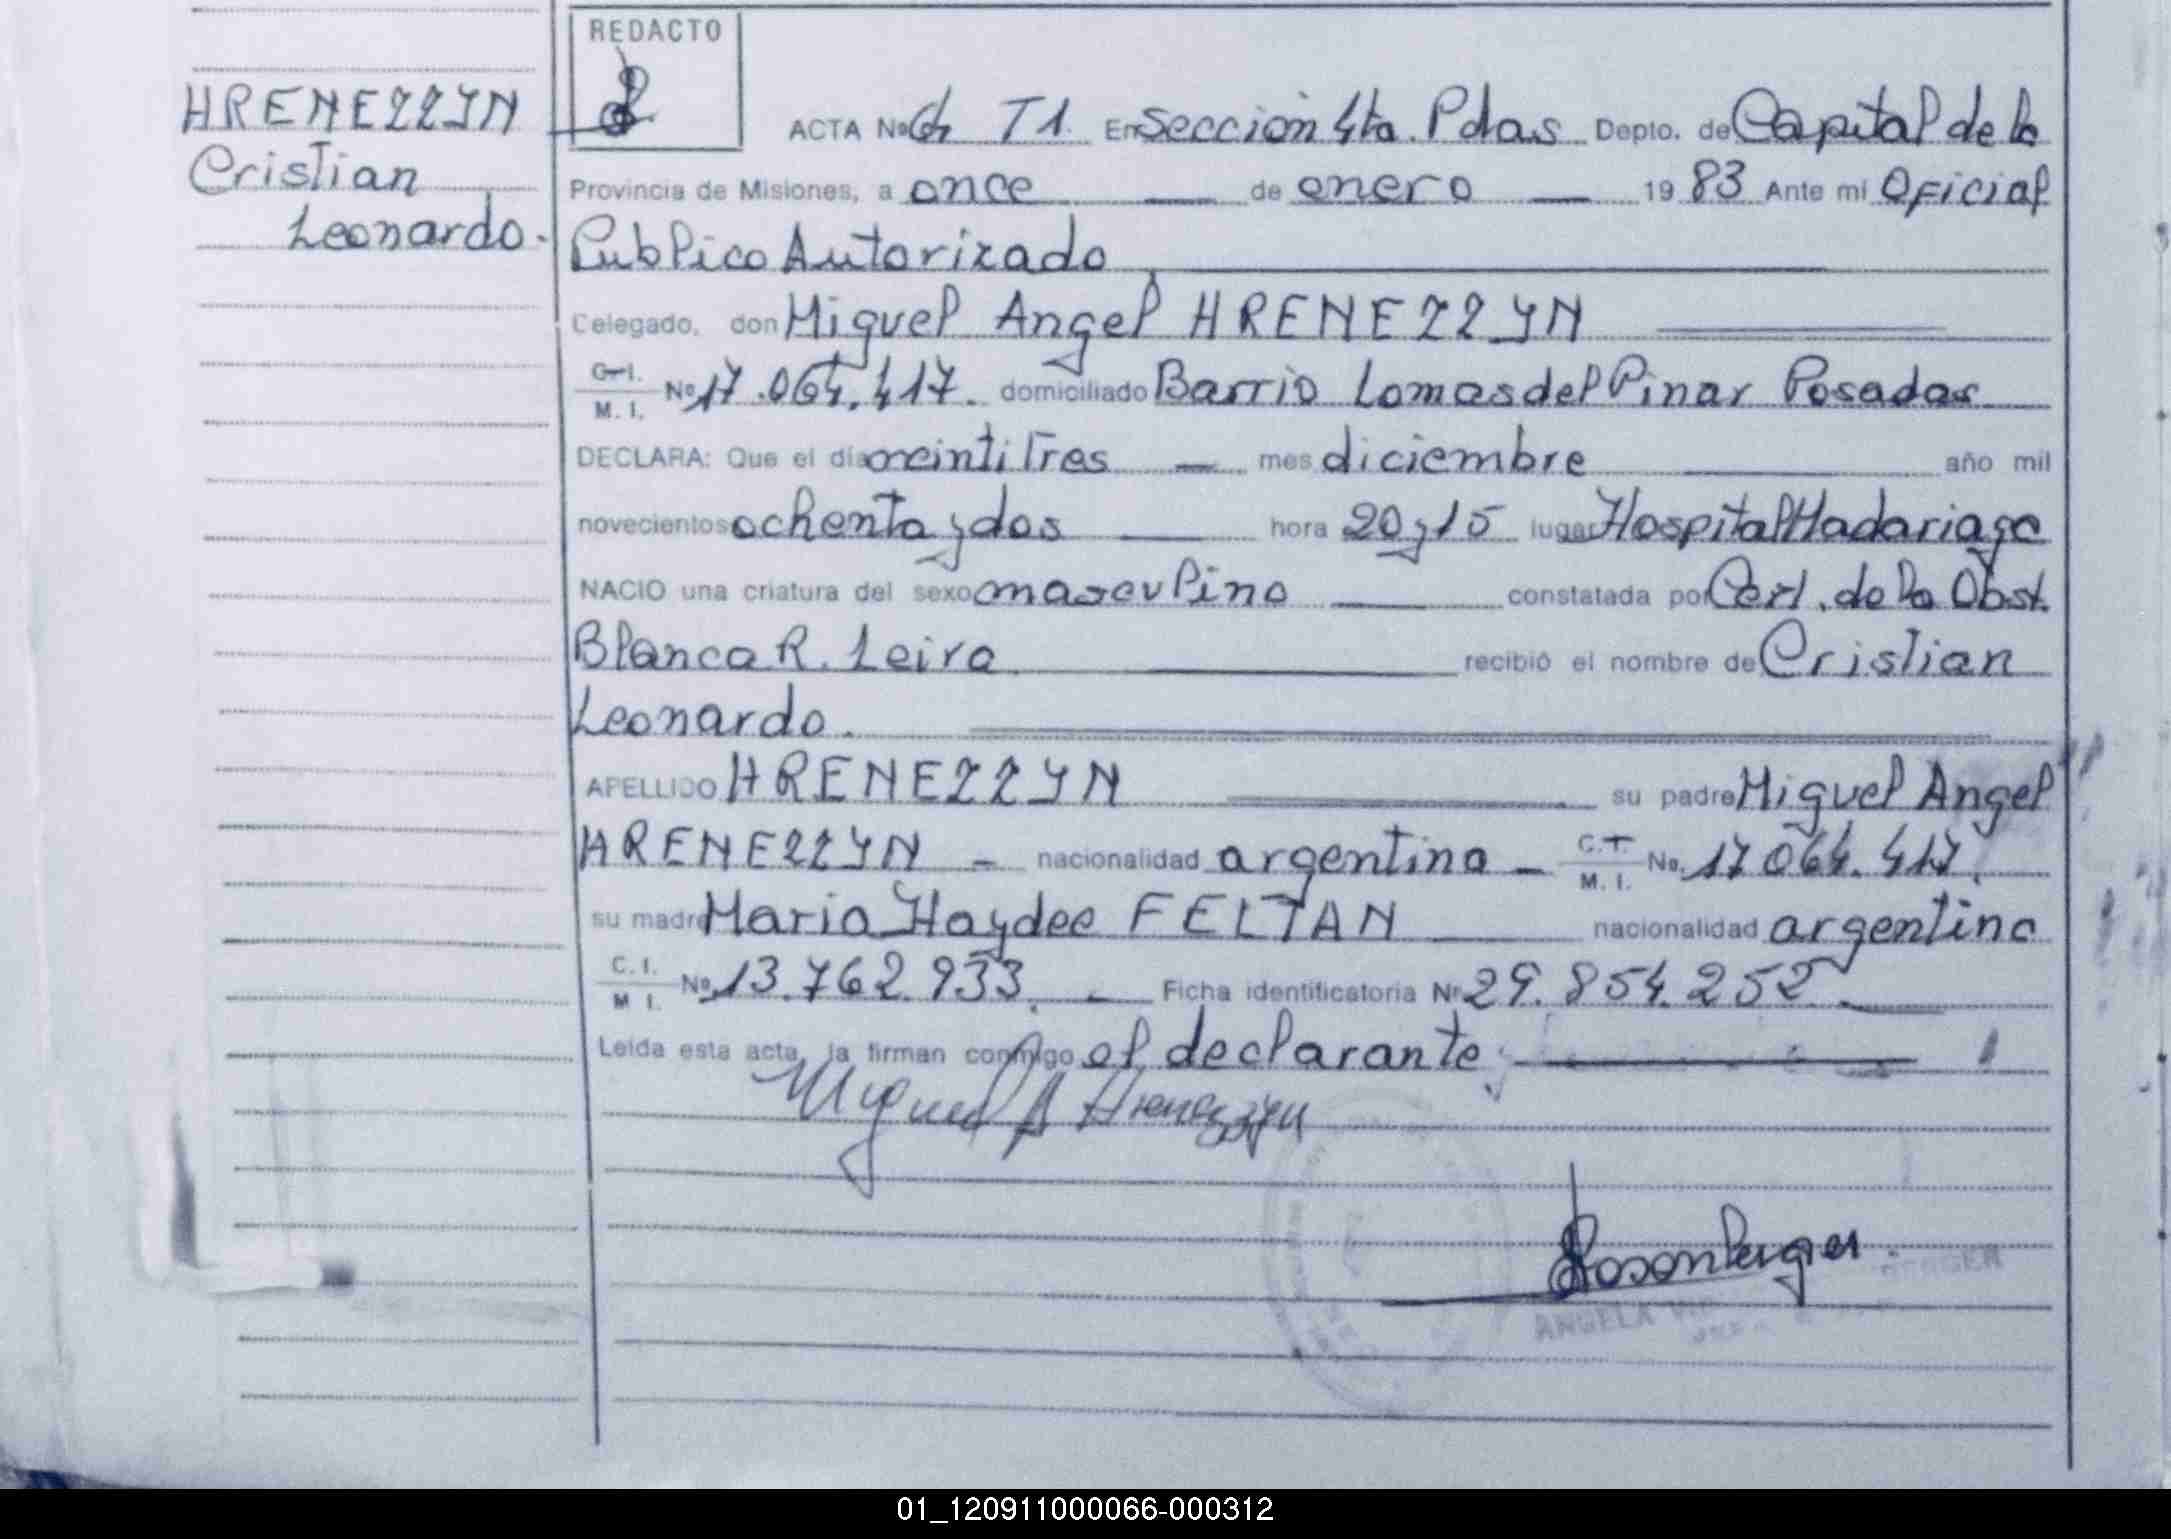 HRENEZZYN
Cristian
Leonardo.
REDACTO
ACTA Nº T1. En Sección 4ta. Pdas Depto. de Capital de la
Provincia de Misiones, a once de enero 1983 Ante mi Oficial
Publico Autorizado
Celegado, don Miguel Angel HRENEZZYN
C.I. M. I. Nº 17.064.417. domiciliado Barrio Lomas del Pinar Posadas
DECLARA: Que el día veintitres mes diciembre año mil
novecientos ochenta y dos hora 20 y 15 lugar Hospital Madariaga
NACIO una criatura del sexo masculino constatada por Cert. de la Obst.
Blanca R. Leiva recibió el nombre de Cristian
Leonardo.
APELLIDO HRENEZZYN su padre Miguel Angel
HRENEZZYN - nacionalidad argentina - C.I. M. I. Nº 17.064.417.
su madre Maria Haydee FELTAN nacionalidad argentina
C. I. M I. Nº 13.762.933. Ficha identificatoria Nº 29.854.252.
Leída esta acta, la firman conmigo el declarante.
Miguel A Hrenezzyn
Rosenberger
ANGELA
01_120911000066-000312